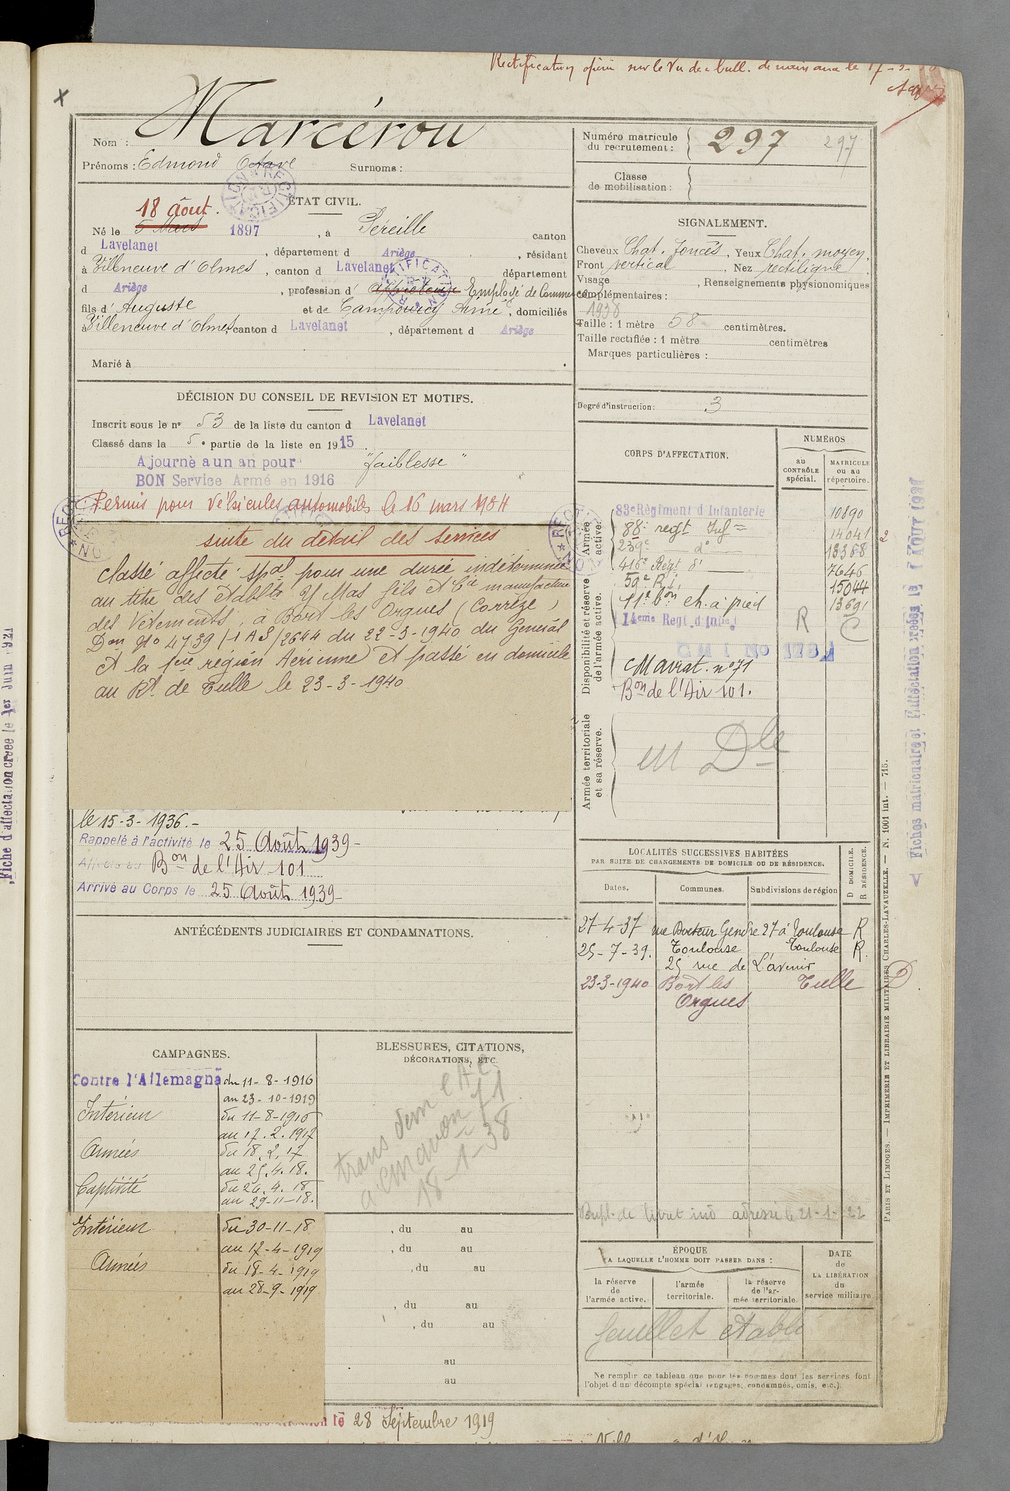 Rectification opérée sur le Vu de bull. de naissance le 17-3-
Nom : Marcérou
Prénoms : Edmond Octave Surnoms :
Numéro matricule du recrutement : 297 297
Classe de mobilisation :
ÉTAT CIVIL.
18 août.
Né le 5 Mars 1897, à Péreille canton
d Lavelanet, département d Ariège, résidant
à Villeneuve d'Olmes, canton d Lavelanet département
d Ariège, profession d' Employé de Commerce
fils d' Auguste et de Campourcy Anne, domiciliés
à Villeneuve d'Olmes, canton d Lavelanet, département d Ariège
Marié à
SIGNALEMENT.
Cheveux Chat. foncés, Yeux Chat. moyen.
Front vertical, Nez rectiligne
Visage, Renseignements physionomiques
complémentaires :
1938
Taille : 1 mètre 58 centimètres.
Taille rectifiée : 1 mètre centimètres
Marques particulières :
Degré d'instruction : 3
DÉCISION DU CONSEIL DE REVISION ET MOTIFS.
Inscrit sous le n° 53 de la liste du canton d Lavelanet
Classé dans la 5e partie de la liste en 1915
Ajourné a un an pour "faiblesse"
BON Service Armé en 1916
Permis pour Véhicules automobiles le 16 mars 1934
suite du detail des services
Classé affecté spal pour une durée indéterminée
au titre des Etablts Y Mas fils et Cie manufacture
des Vêtements, à Bort les Orgues (Corrèze)
Don No 4739/1 A S/2644 du 22-3-1940 du Général
Ct la 1ère région Aérienne Et passé en domicile
au Rt de Tulle le 23-3-1940
le 15-3-1936.-
Rappelé à l'activité le 25 Août 1939-
Affecté au Bon de l'Air 101
Arrivé au Corps le 25 Août 1939-
CORPS D'AFFECTATION.
NUMÉROS
au CONTRÔLE spécial.
MATRICULE ou au répertoire.
Armée active.
83e Régiment d'Infanterie 10890
88e regt Infie 14041
239e d° 18368
416e Regt d° 7646
Disponibilité et réserve de l'armée active.
59e R.I. 15044
11e Bon ch. à pied 13691
14eme Regt d'Infie R C
C M I No 173
C Mavat. n°71
Bon de l'Air 101.
Armée territoriale et sa réserve.
M Dle
ANTÉCÉDENTS JUDICIAIRES ET CONDAMNATIONS.
LOCALITÉS SUCCESSIVES HABITÉES
PAR SUITE DE CHANGEMENTS DE DOMICILE OU DE RÉSIDENCE.
Dates. Communes. Subdivisions de région D DOMICILE. R RÉSIDENCE.
27-4-37 rue Docteur Gendre 27 à Toulouse R
25-7-39. Toulouse Toulouse R.
25 rue de L'avenir
23-3-1940 Bort les Orgues Tulle D
CAMPAGNES.
Contre l'Allemagne du 11-8-1916
au 23-10-1919
Intérieur du 11-8-1916
au 17.2.1917
Armées du 18.2.17
au 25.4.18.
Captivité du 26.4.18
au 29-11-18.
Intérieur du 30-11-18
au 17-4-1919
Armées du 18-4-1919
au 28-9-1919
BLESSURES, CITATIONS, DÉCORATIONS, ETC.
18-1-38
, du au
, du au
, du au
, du au
, du au
au
au
Dupl. de livret ind adressé le 21-1-22
ÉPOQUE
A LAQUELLE L'HOMME DOIT PASSER DANS :
la réserve de l'armée active.
l'armée territoriale.
la réserve de l'armée territoriale.
DATE de LA LIBÉRATION du service militaire
feuillet établi
Ne remplir ce tableau que pour les hommes dont les services font
l'objet d'un décompte spécial (engagés, condamnés, omis, etc.).
28 Septembre 1919
PARIS ET LIMOGES. — IMPRIMERIE ET LIBRAIRIE MILITAIRES CHARLES-LAVAUZELLE. — N. 1001 int. — 715.
Fiche d'affectation créée le 1er Juin 1921